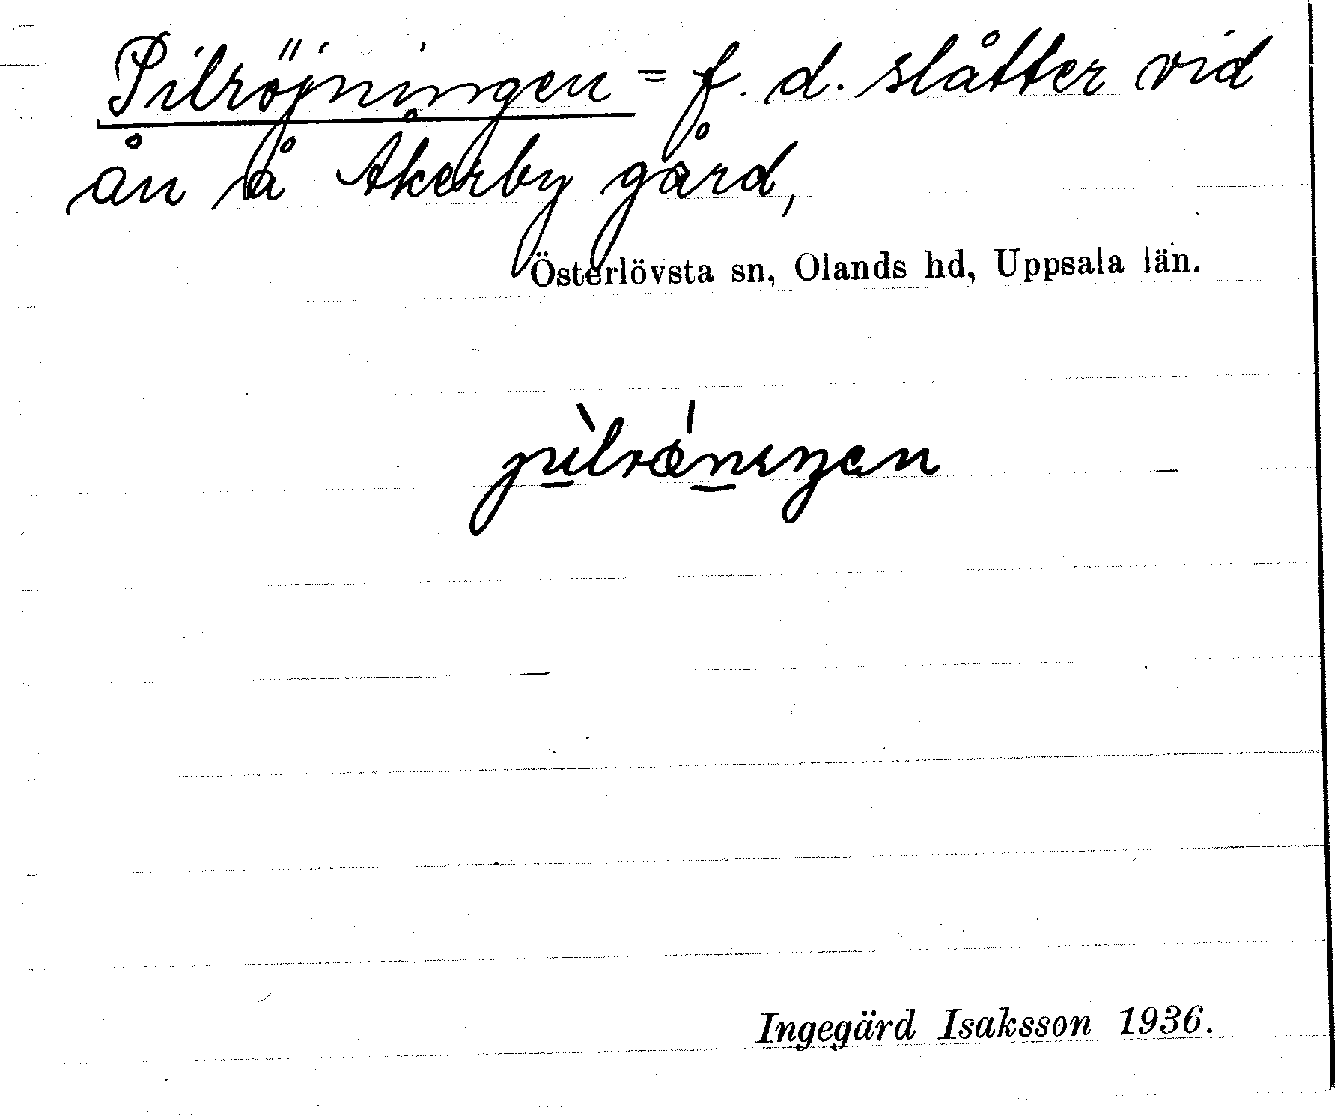 Pilröjningen = f. d. slåtter vid
ån å Åkerby gård,
Österlövsta sn, Olands hd, Uppsala län.
pìlrǿnıŋen
Ingegärd Isaksson 1936.